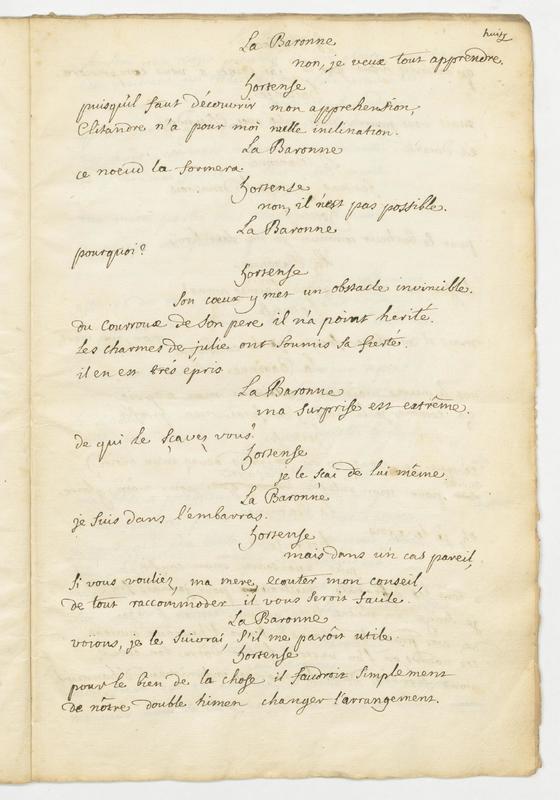 huit
La Baronne
non, je veux tout apprendre.
hortense
puisqu'il faut découvrir mon apprehension,
Clitandre n'a pour moi nulle inclination.
La Baronne
ce noeud la formera.
hortense
non, il n'est pas possible.
La Baronne
pourquoi?
hortense
son coeur y met un obstacle invincible.
du courroux de son pere il n'a point herité.
les charmes de julie ont soumis sa fierté.
il en est trés épris
La Baronne
ma surprise est extrême.
de qui le sçavez vous?
hortense
je le scai de lui même.
La Baronne
je suis dans l'embarras.
hortense
mais dans un cas pareil,
si vous vouliez, ma mere, ecouter mon conseil,
de tout raccommoder il vous seroit facile.
La Baronne
voions, je le suivrai, s'il me paroît utile.
hortense
pour le bien de la chose il faudroit simplement
de nôtre double himen changer l'arrangement.